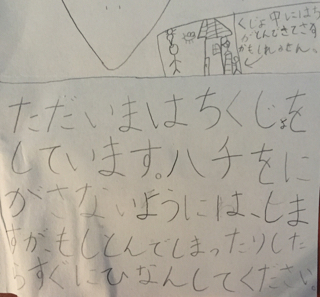 くじょ中にはち
がとんできてさす
かもしれません。
ただいまはちくじょを
しています。ハチをに
がさないようには、しま
すが、もしとんでしまったりした
らすぐにひなんしてください。